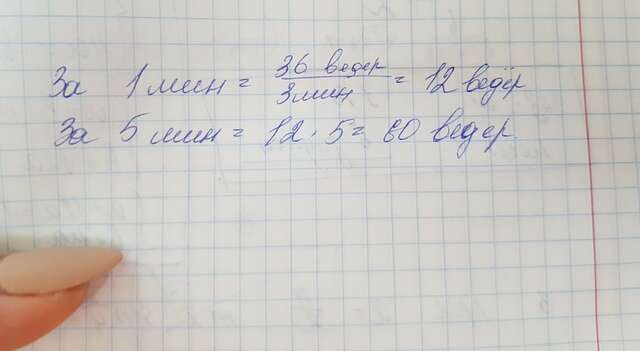 За 1 мин = 36 ведер / 3 мин = 12 ведёр
За 5 мин = 12 · 5 = 60 ведер